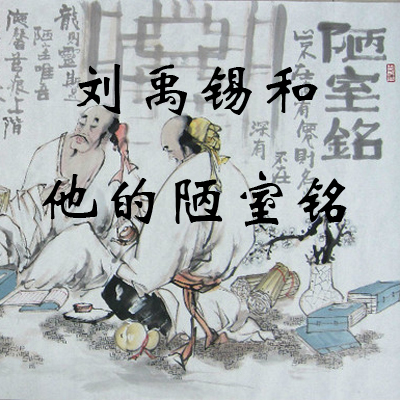 刘禹锡和
他的陋室铭
陋室銘
山不在高有僊則名
不在
深有
龍則靈斯是
陋室唯吾
德馨苔痕上階